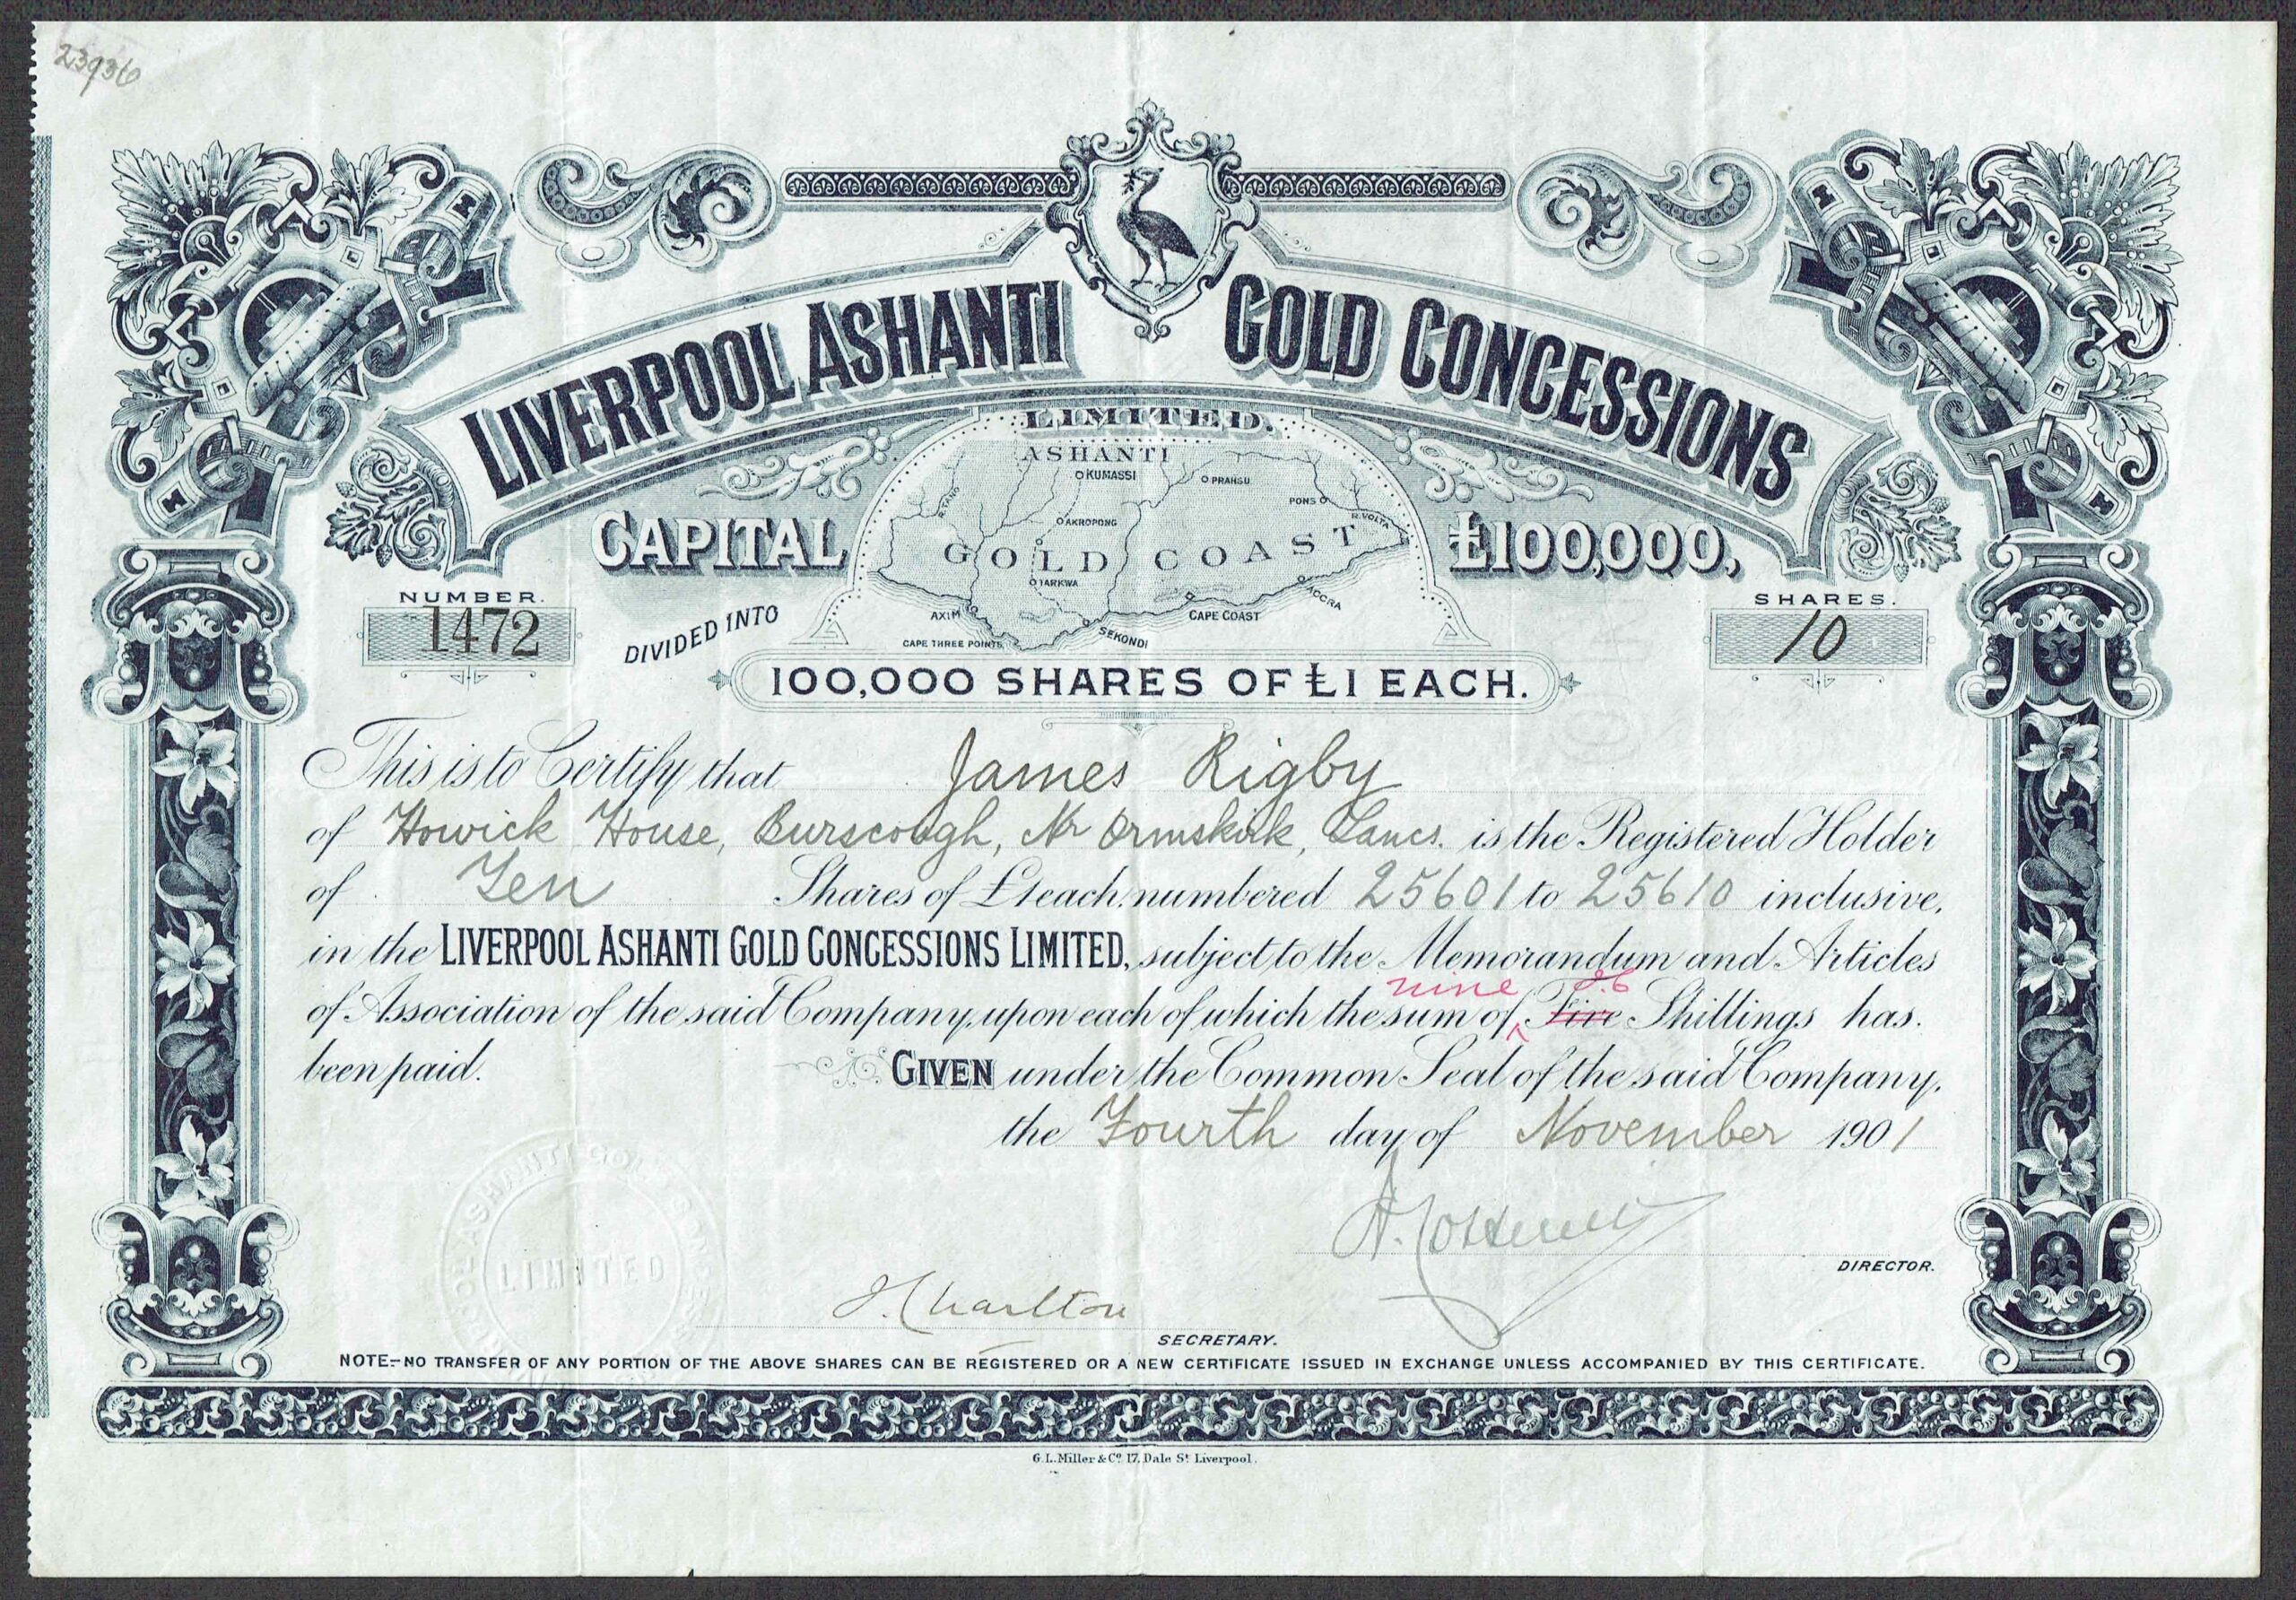 23936
LIVERPOOL ASHANTI GOLD CONCESSIONS
LIMITED.
ASHANTI
KUMASSI
PRAHSU
PONS
R. TANO
R. VOLTA
AKROPONG
GOLD COAST
TARKWA
ACCRA
AXIM
CAPE COAST
CAPE THREE POINTS
SEKONDI
CAPITAL £100,000,
NUMBER.
1472
SHARES.
10
DIVIDED INTO
100,000 SHARES OF £1 EACH.
This is to Certify that James Rigby
of Howick House, Burscough, Nr Ormskirk, Lancs. is the Registered Holder
of Ten Shares of £1 each, numbered 25601 to 25610 inclusive,
in the LIVERPOOL ASHANTI GOLD CONCESSIONS LIMITED, subject to the Memorandum and Articles
nine
of Association of the said Company, upon each of which the sum of Five Shillings has
been paid. GIVEN under the Common Seal of the said Company,
the Fourth day of November 1901
DIRECTOR.
J. Charlton
SECRETARY.
LIVERPOOL ASHANTI GOLD CONCESSIONS
LIMITED
NOTE:-NO TRANSFER OF ANY PORTION OF THE ABOVE SHARES CAN BE REGISTERED OR A NEW CERTIFICATE ISSUED IN EXCHANGE UNLESS ACCOMPANIED BY THIS CERTIFICATE.
G. L. Miller & Co. 17, Dale St Liverpool.